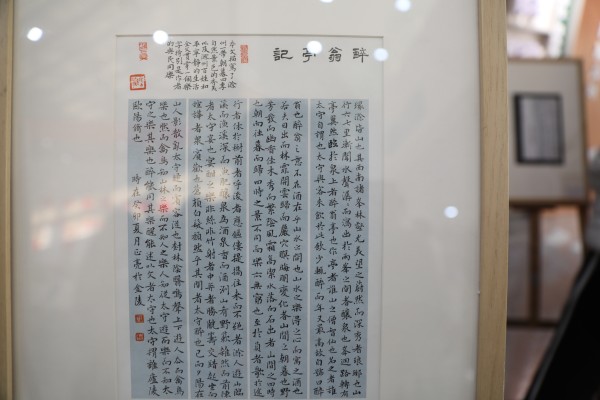 醉翁亭記
本文描寫了滁
州一帶朝暮四季
自然景色的秀美
以及滁州百姓和
平寧靜的生活
全文貫穿一個樂
字特別是作者
的與民同樂
環滁皆山也其西南諸峯林壑尤美望之蔚然而深秀者瑯琊也山
行六七里漸聞水聲潺潺而瀉出於兩峯之間者釀泉也峯迴路轉有
亭翼然臨於泉上者醉翁亭也作亭者誰山之僧智仙也名之者誰
太守自謂也太守與客來飲於此飲少輒醉而年又最高故自號曰醉
翁也醉翁之意不在酒在乎山水之間也山水之樂得之心而寓之酒也
若夫日出而林霏開雲歸而巖穴暝晦明變化者山間之朝暮也野
芳發而幽香佳木秀而繁陰風霜高潔水落而石出者山間之四時
也朝而往暮而歸四時之景不同而樂亦無窮也至於負者歌於途
行者休於樹前者呼後者應傴僂提攜往來而不絕者滁人遊也臨
溪而漁溪深而魚肥釀泉為酒泉香而酒洌山肴野蔌雜然而前陳
者太守宴也宴酣之樂非絲非竹射者中弈者勝觥籌交錯起坐而
諠譁者衆賓歡也蒼顏白髮頹然乎其間者太守醉也已而夕陽在
山人影散亂太守歸而賓客從也樹林陰翳鳴聲上下遊人去而禽鳥
樂也然而禽鳥知山林之樂而不知人之樂人知從太守遊而樂而不知太
守之樂其樂也醉能同其樂醒能述以文者太守也太守謂誰廬陵
歐陽脩也 時在癸卯夏月正亮於金陵